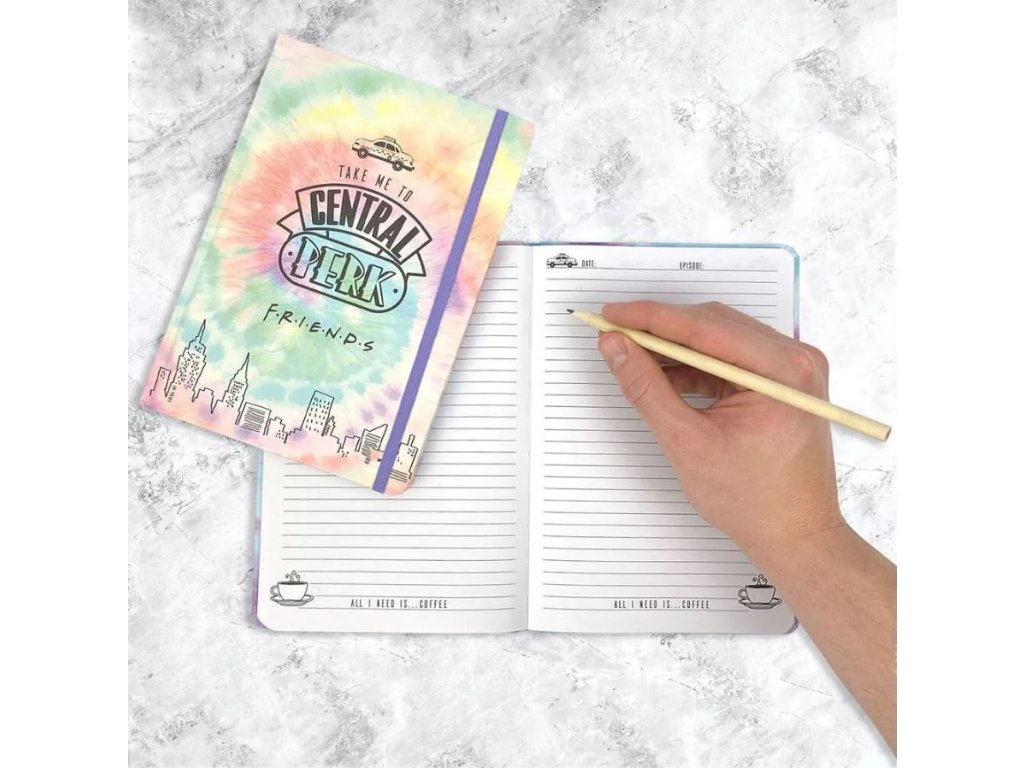 TAKE ME TO
CENTRAL
PERK
F·R·I·E·N·D·S
DATE: EPISODE:
ALL I NEED IS...COFFEE
ALL I NEED IS...COFFEE